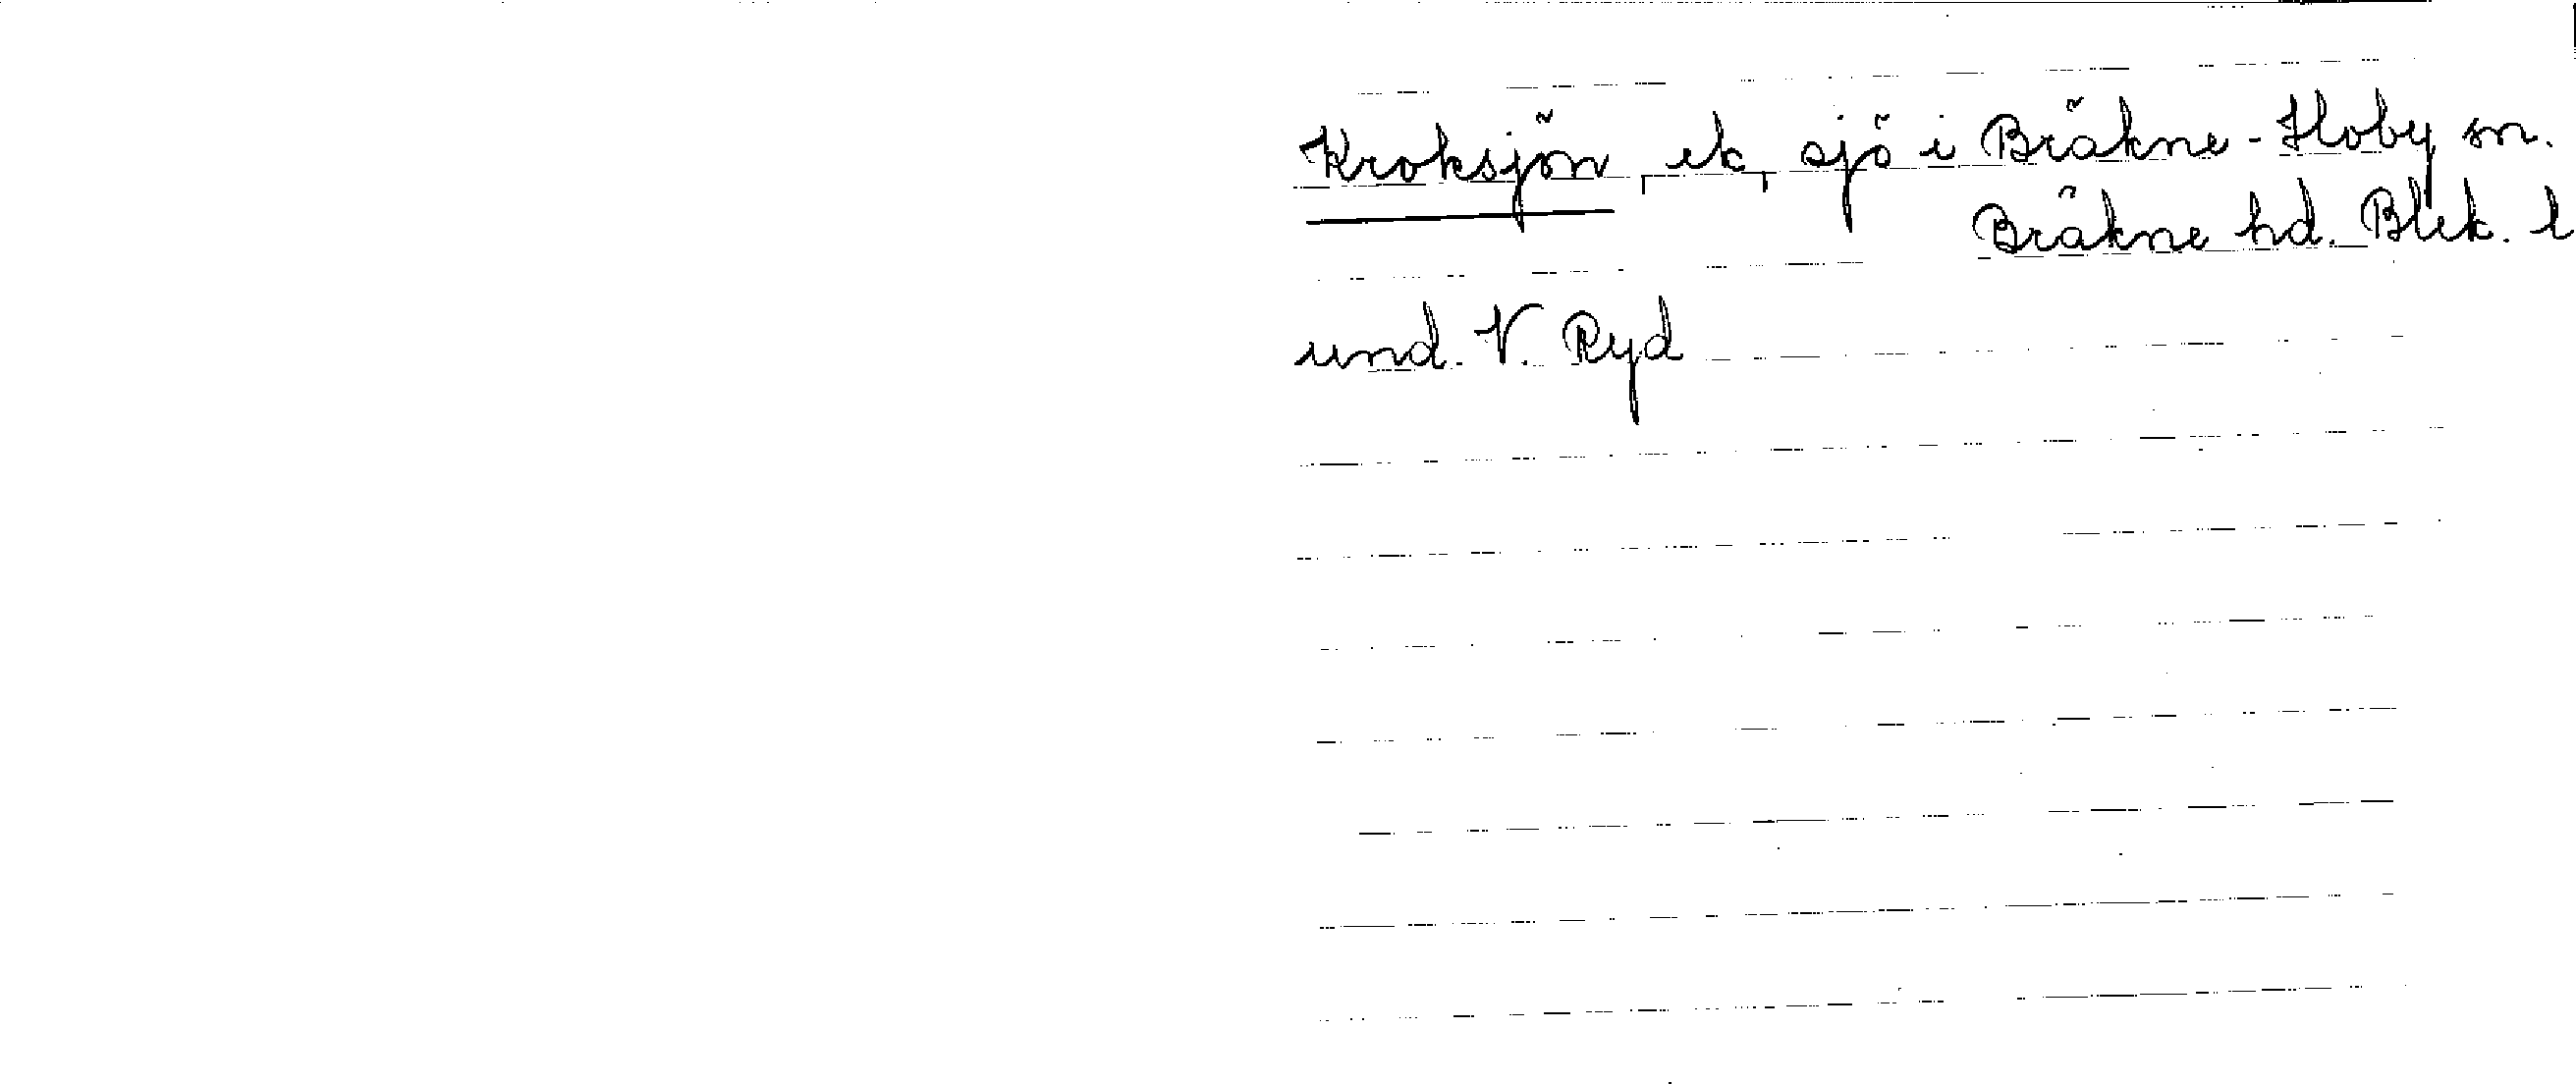 Kroksjön, ek, sjö i Bräkne-Hoby sn.
Bräkne hd. Blek. l
und. V. Ryd